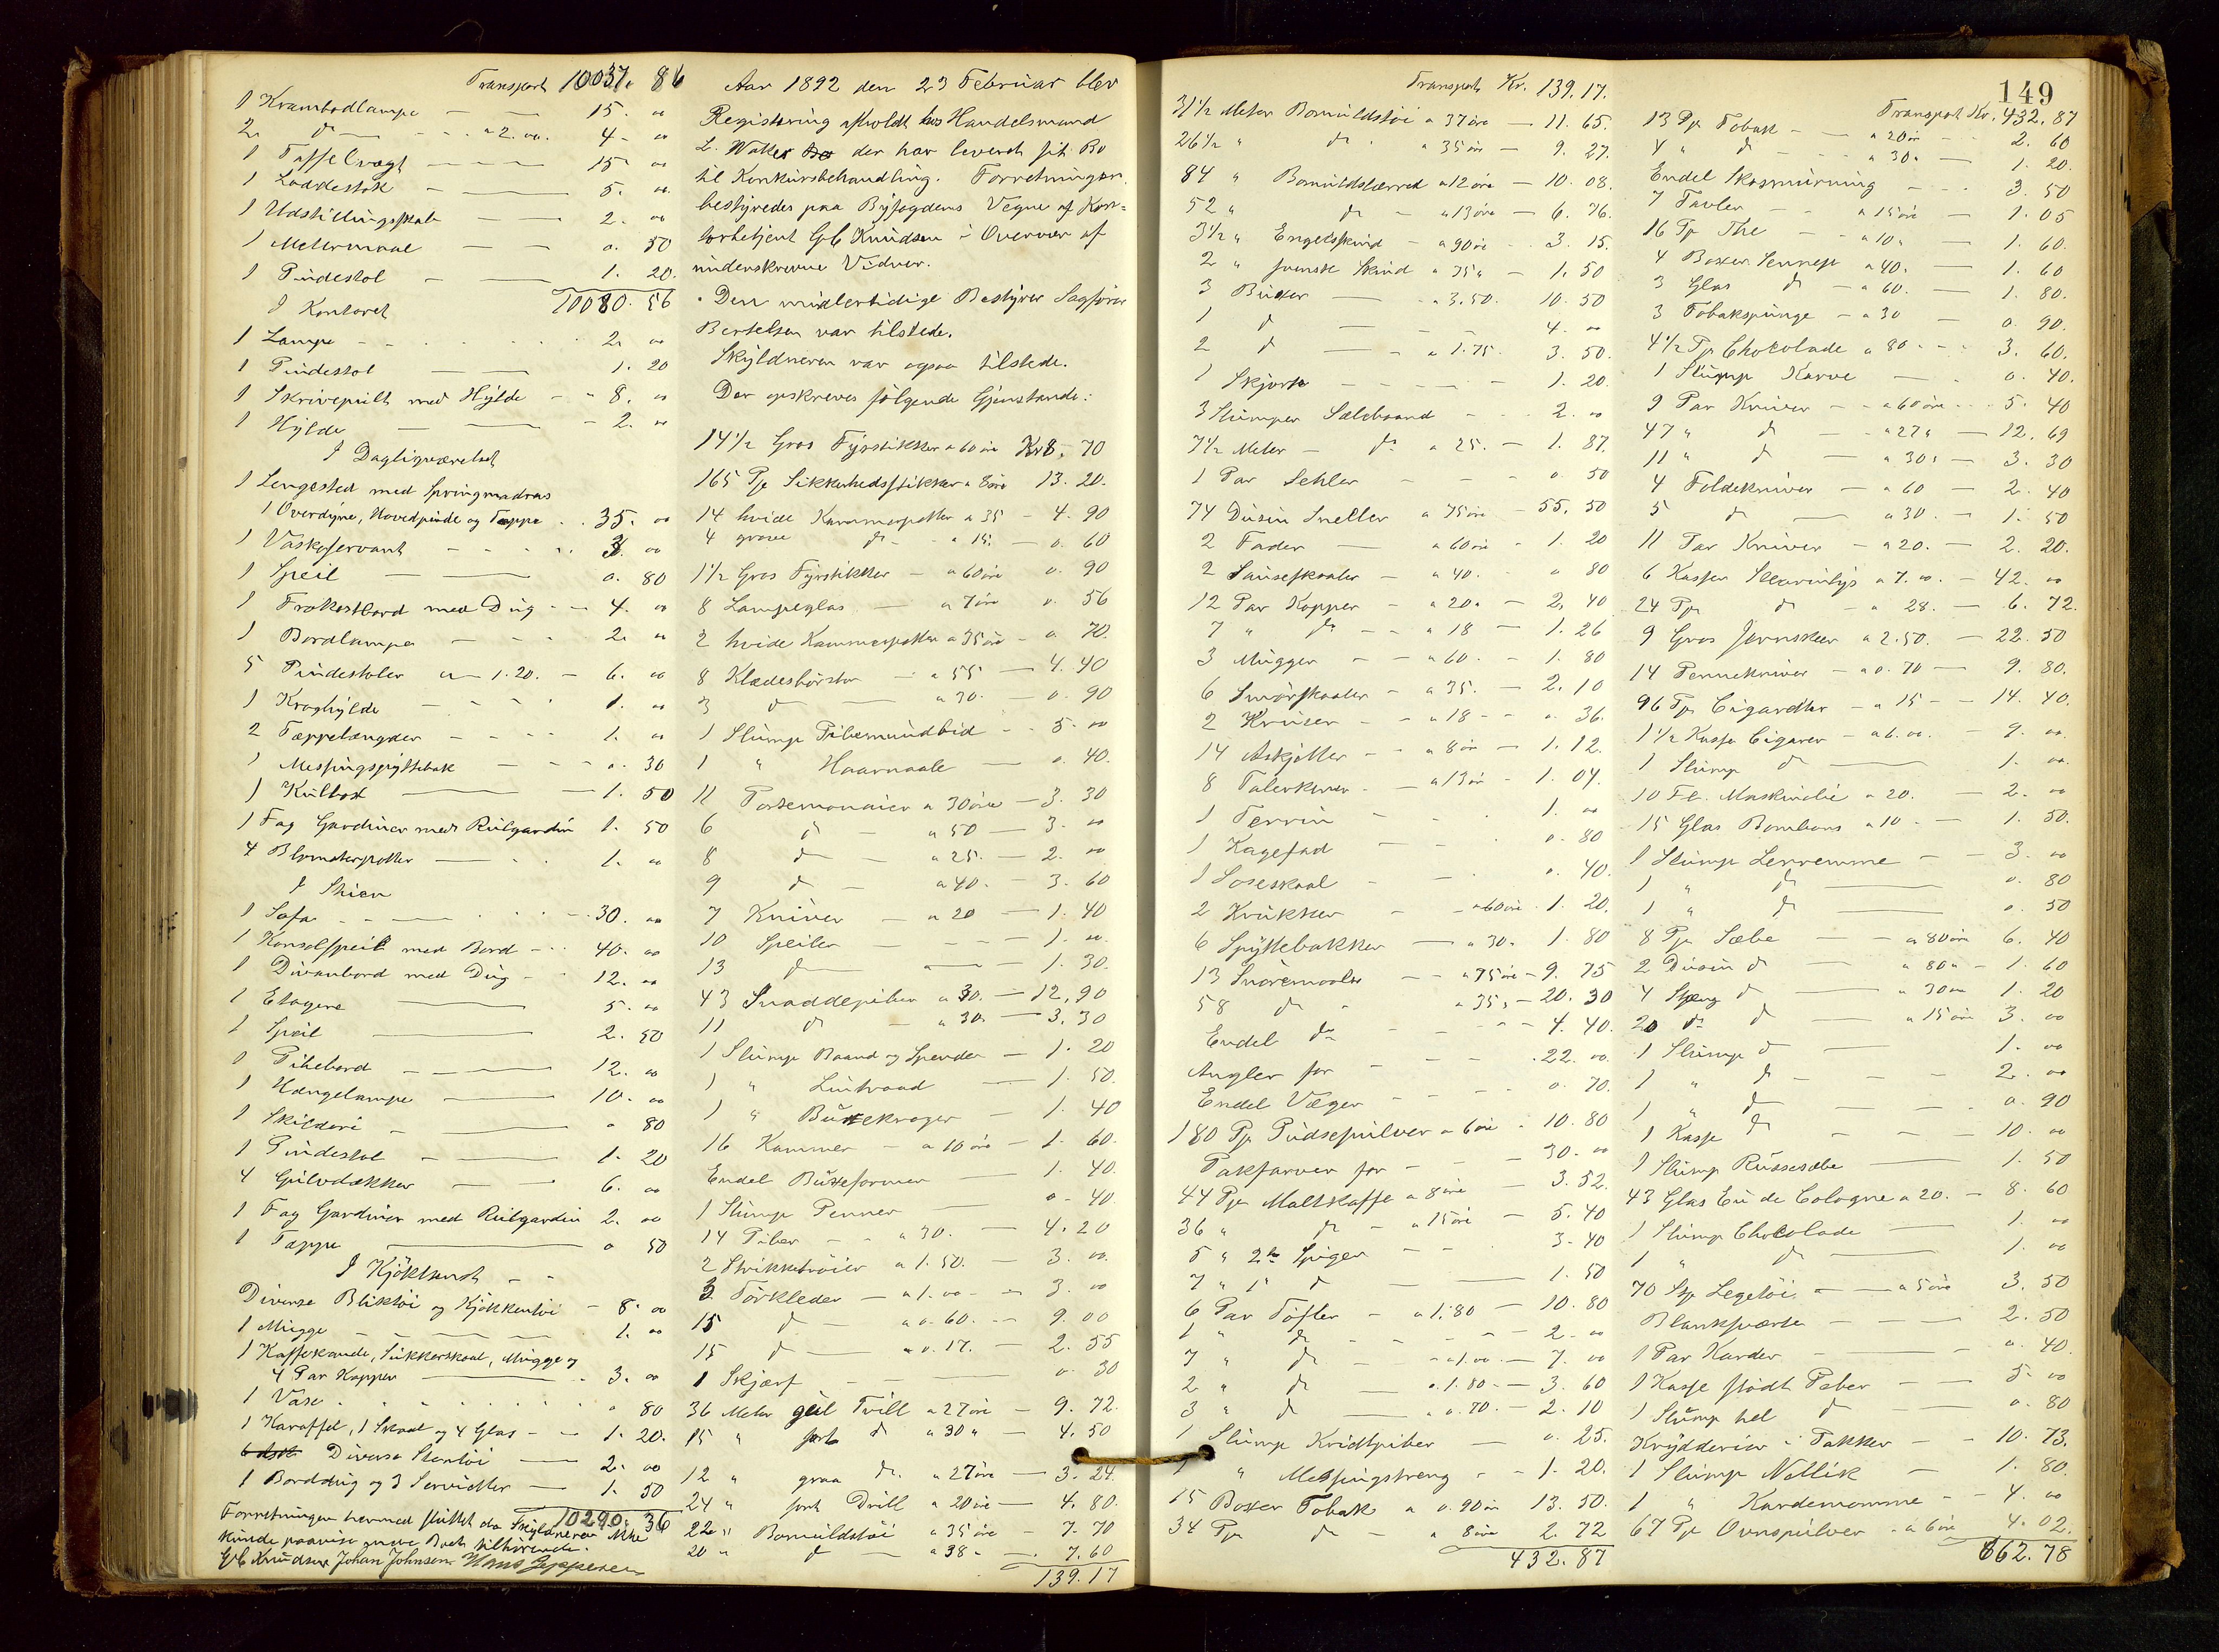 Transport 10037. 86
1 Krambodlampe — 15. 00
2 do — a 2.00. 4. 00
1 Taffelvægt — 15. 00
1 Laddestok — 5. 00
1 Udstillingsskab — 2. 00
1 Metermaal — 0. 50
1 Pindestol — 1. 20.
10080. 56
I Kontoret
1 Lampe — 2. 00
1 Pindestol — 1. 20
1 Skrivepult med Hylde — 8. 00
1 Hylde — 2. 00
I Dagligværelset
1 Sengested med Springmadras
1 Overdyne, Hovedpude og Tæppe 35. 00
1 Vaskeservant — 3. 00
1 Speil — 0. 80
1 Frokostbord med Dug — 4. 00
1 Bordlampe — 2. 00
5 Pindestoler a 1.20. — 6. 00
1 Kroghylde — 1. 00
2 Tæppelængder — 1. 00
1 Messingspyttebak — 0. 30
1 Kulboks — 1. 50
1 Fag Gardiner med Rulgardin 1. 50
4 Blomsterpotter — 1. 00
I Stuen
1 Sofa — 30. 00
1 Konsolspeil med Bord — 40. 00
1 Divanbord med Dug — 12. 00
1 Etagere — 5. 00
1 Speil — 2. 50
1 Pibebord — 12. 00
1 Hængelampe — 10. 00
1 Skilderi — 0 80
1 Pindestol — 1. 20
4 Gulvdækker — 6. 00
1 Fag Gardiner med Rulgardin 2. 00
1 Tæppe — 0 50
I Kjøkkenet
Diverse Bliktøi og Kjøkkentøi — 8. 00
1 Mugge — 1. 00
1 Kaffekande, Sukkerskaal, Mugge og
4 Par Kopper — 3. 00
1 Vase — 0 80
1 Karaffel, 1 Skaal og 4 Glas — 1. 20.
Diverse Stentøi — 2. 00
1 Borddug og 3 Servietter — 1. 50
10290. 36
Forretningen hermed sluttet da Skyldneren ikke
kunde paavise mere Boet tilhørende.
G C Knudsen Johan Johnsen Hans Jeppesen
Aar 1892 den 23 Februar blev
Registering afholdt hos Handelsmand
L. der har leveret sit Bo
til Konkursbehandling. Forretningen
bestyredes paa Byfogdens Vegne af Kon=
torbetjent G C Knudsen i Overvær af
underskrevne Vidner.
Den midlertidige Bestyrer Sagfører
Bertelsen var tilstede.
Skyldneren var ogsaa tilstede.
Der opskreves følgende Gjenstande:
14 1/2 Gros Fyrstikker a 60 øre Kr 8. 70
165 Pk Sikkerhedsstikker a 8 øre 13. 20.
14 hvide Kammerpotter a 35 — 4. 90
4 graae do a 15. — 0. 60
1 1/2 Gros Fyrstikker — a 60 øre 0. 90
8 Lampeglas — a 7 øre 0. 56
2 hvide Kammerpotter a 35 øre — 0. 70.
8 Klædesbørster — a 55 — 4. 40
3 do — a 30. — 0. 90
1 Slump Pibemundbid — 5. 00
1 " Haarnaale — 0. 40.
11 Portemonaier a 30 øre — 3. 30
6 do — a 50 — 3. 00
8 do — a 25. — 2. 00
9 do — a 40. — 3. 60
7 Kniver — a 20 — 1. 40
10 Speiler — 1. 00
13 do — 1. 30.
43 Snaddepiber a 30. — 12,90
11 do — a 30. — 3. 30
1 Slump Baand og Spender — 1. 20
1 " Lintraad — 1. 50.
1 " Buxekroger — 1. 40
16 Kammer — a 10 øre — 1. 60.
Endel Buxeformer — 1. 40.
1 Slump Penner — 0. 40.
14 Piber — a 30. — 4. 20
2 Strikketrøier a 1. 50. — 3. 00
3 Forklæder — a 1. 00 — 3. 00
15 do — a 0. 60. — 9. 00
15 do — a 0. 17. — 2. 55
1 Skjærf — 0. 30
36 Meter gul Tvill a 27 øre — 9. 72.
15 " sort do a 30 " — 4. 50
12 " graa do. a 27 øre — 3. 24.
24 " sort Drill a 20 øre — 4. 80.
22 " Bomuldstøi a 35 øre — 7. 70
20 " do a 38 " — 7. 60
139. 17
Transport Kr. 139. 17.
31 1/2 Meter Bomuldstøi a 37 øre — 11. 65.
26 1/2 " do. a 35 øre — 9. 27.
84 " Bomuldslærred a 12 øre — 10. 08.
52 " do — a 13 øre — 6. 76.
3 1/2 " Engelskind — a 90 øre — 3. 15.
2 " svensk Skind a 75 " — 1. 50
3 Buxer — a 3.50. 10. 50
1 do — 4. 00
2 do — a 1.75. 3. 50.
1 Skjorte — 1. 20.
3 Slumper Sælebaand — 2. 00
7 1/2 Meter — do a 25. — 1. 87.
1 Par Sehler — 0. 50
74 Dusin Sneller a 75 øre — 55. 50
2 Fader — a 60 øre — 1. 20
2 Sauseskaaler — a 40. 0 80
12 Par Kopper — a 20. — 2. 40
7 " do — a 18 — 1. 26
3 Mugger — a 60. — 1. 80
6 Smørskaaler — a 35. — 2. 10
2 Kruser — a 18 — 0. 36.
14 Askjetter — a 8 øre — 1. 12.
8 Talerkener — a 13 øre — 1. 04.
1 Terrin — 1. 00
1 Kagefad — 0. 80
1 Soseskaal — 0. 40.
2 Krukker — a 60 øre 1. 20.
6 Spyttebakker — a 30. 1. 80
13 Snøremaaler — a 75 øre — 9. 75
58 do — a 35. — 20. 30
Endel do — 4. 40.
Angler for — 22. 00.
Endel Væger — 0. 70.
180 Pk Pudsepulver a 6 øre — 10. 80
Pakfarver for — 30. 00
44 Pk Maltkaffe a 8 øre — 3. 52.
36 " do — a 15 øre — 5. 40
5 " 2 Spiger — 3. 40
7 " 1 do — 1. 50
6 Par Tøfler — a 1.80 — 10. 80
1 " do — 2. 00
7 " do — a 1.00 — 7. 00
2 " do — a 1.80 — 3. 60
3 " do — a 0.70. — 2. 10
1 Slump Kridtpiber — 0. 25.
1 " Messingstreng — 1. 20.
15 Boxer Tobak a 0. 90 øre 13. 50.
34 Pk do — a 8 øre 2. 72
432. 87
149
Transport Kr. 432. 87
13 Pk Tobak — a 20 øre 2. 60
4 " do — a 30. — 1. 20.
Endel Skosmurning — 3. 50
7 Tavler — a 15 øre — 1. 05
16 Pk The — a 10. — 1. 60.
4 Boxer Sennep a 40. — 1. 60
3 Glas do — a 60. — 1. 80.
3 Tobakspunge — a 30 — 0. 90.
4 1/2 Pk Chocolade a 80 — 3. 60.
1 Slump Karve — 0. 40.
9 Par Kniver — a 60 øre — 5. 40
47 " do — a 27 " — 12. 69
11 " do — a 30. — 3. 30
4 Foldekniver — a 60 — 2. 40
5 do — a 30. — 1. 50
11 Par Kniver — a 20. — 2. 20.
6 Kasser Stearinlys a 7.00. — 42. 00
24 Pk do — a 28. — 6. 72.
9 Gros Jernskeer a 2.50. — 22. 50
14 Pennekniver — a 0. 70 — 9. 80.
96 Pk Cigaretter — a 15 — 14. 40.
1 1/2 Kasse Cigarer — a 6.00. — 9. 00.
1 Slump do — 1. 00.
10 Fl. Maskinolie a 20. — 2. 00
15 Glas Bonbons a 10. — 1. 50.
1 Slump Lerremme — 3. 00
1 " do — 0. 80
1 " do — 0. 50
8 Pk Sæbe — a 80 øre 6. 40
2 Dusin do — a 80 " — 1. 60
4 Stang do — a 30 øre 1. 20
20 do do — a 15 øre 3. 00
1 Slump do — 1. 00
1 " do — 2. 00
1 " do — 0. 90
1 Kasse do — 10. 00
1 Slump Russesæbe — 1. 50
43 Glas Eu de Cologne a 20. — 8. 60
1 Slump Chocolade — 1. 00
1 " do — 1. 00
70 Stk Legetøi — a 5 øre 3. 50
Blanksværte — 2. 50
1 Par Karder — 0. 40.
1 Kasse stødt Peber — 5. 00
1 Slump hel do — 0. 80
Krydderier i Pakker — 10. 73.
1 Slump Nellik — 1. 80.
1 " Kardemomme — 4. 00
67 Pk Ovnspulver — a 6 øre 4. 02.
662. 78